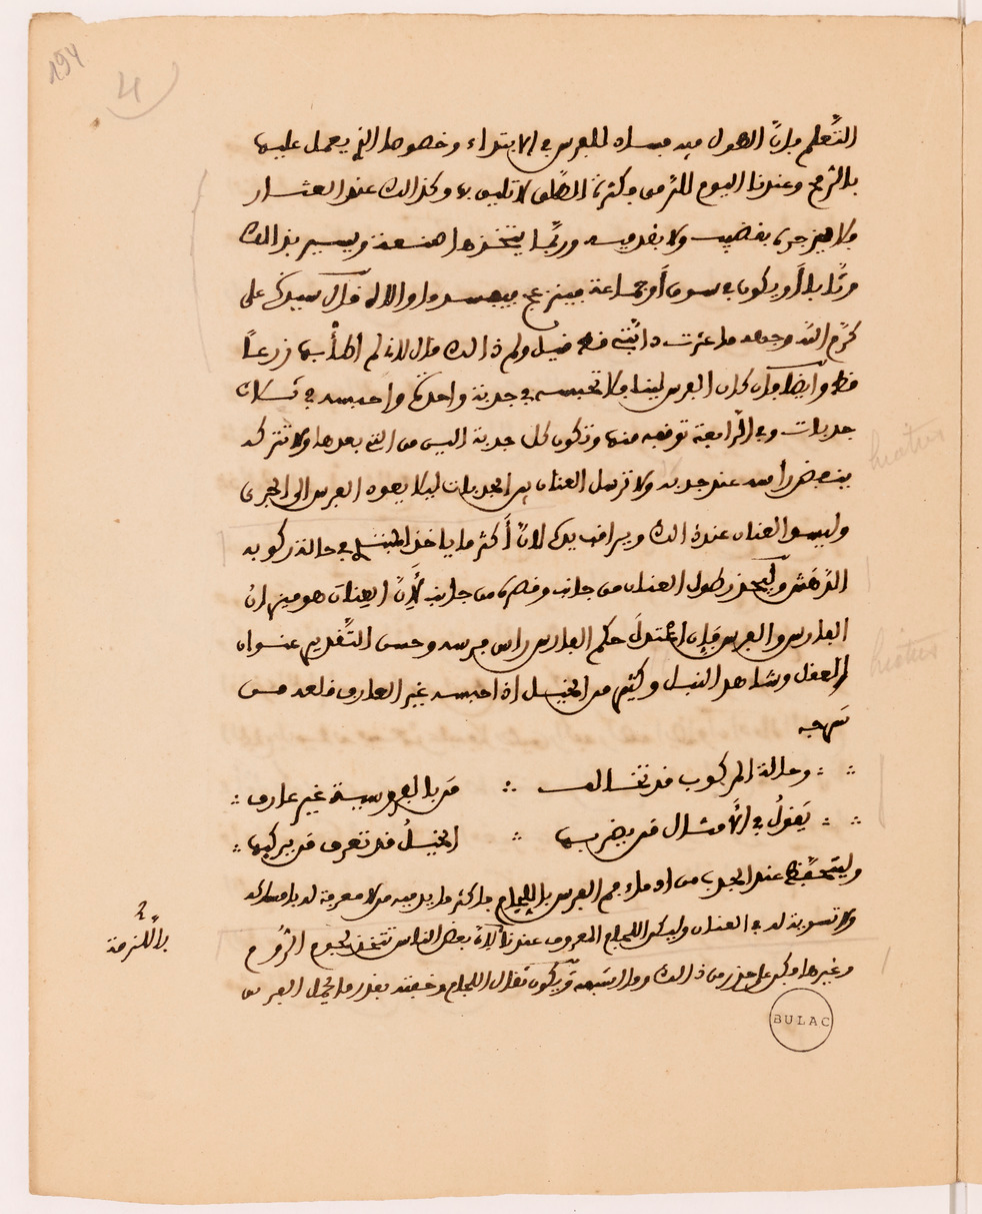 194
4
التَّعلم فإنّ الطول فيه فساد للفرس في الابتداء وخصوصا التي يعمل عليها
بالرّمح وعندنا اليوم للرّمى وكثرة الطّلق لا تليق به وكذالك عند العثار
فلا يزجره بقضيب ولا بقدميه وربّما يتخذها صنعة ويسير بذالك
أو يكون في سوق أو جماعة فينزعج فيفسد ما والاه قال سيدنا على
كرّم اللّه وجهه ما عثرت دابّتي قط قيل ولم ذالك قال لانّه لم اطأ بها زرعاً
قط وأيضا فإن كان الفرس لينا فلا تحبسه في جدبة واحدة واحبسه في ثلاث
جدبات وفي الرّابعة توقفه منها وتكون كل جدبة اليس من التي بعدها ولا تتركه
ينفض راسه عند جدبه ولا ترسل العنان بين الجدبات ليلا يعود الفرس الى الجرى
وليسو العنان عند ذالك ويراقب يده لانّ أكثر ما ياخذ المبتدى في حالة ركوبه
الدّهش وليحذر طول العنان من جانب وقصره من جانب لأنّ العنان هو ميزان
الفارس والفرس فإن اعتدل حكم الفارس راس فرسه وحسن التّقديم عنوان
العقل وشاهد النبل وكثير من الخيل اذا حبسه غير العارف قلعه من
سرجه
وحالة المركوب قد تخالف ∴ من بالفروسية غير عارف
يَقولُ في الأمثال من يضربها ∴ الخيلُ قد تعرف من يركبها
وليتحفّظ عند الجرى من ادماء فم الفرس باللّجام فاكثر ما يدميه من لا معرفة له بامساكه
ولا تسوية له في العنان وليكن اللجام المعروف عندنا لانّ بعض الناس تتخذ لجوم الرّوم
وغيرها وكن على حذر من ذالك وما اشبهه ويكون ثقال اللجام وخفّته بقدر ما يحمل الفرس
باللّزمة
hiatus
hiatus
BULAC